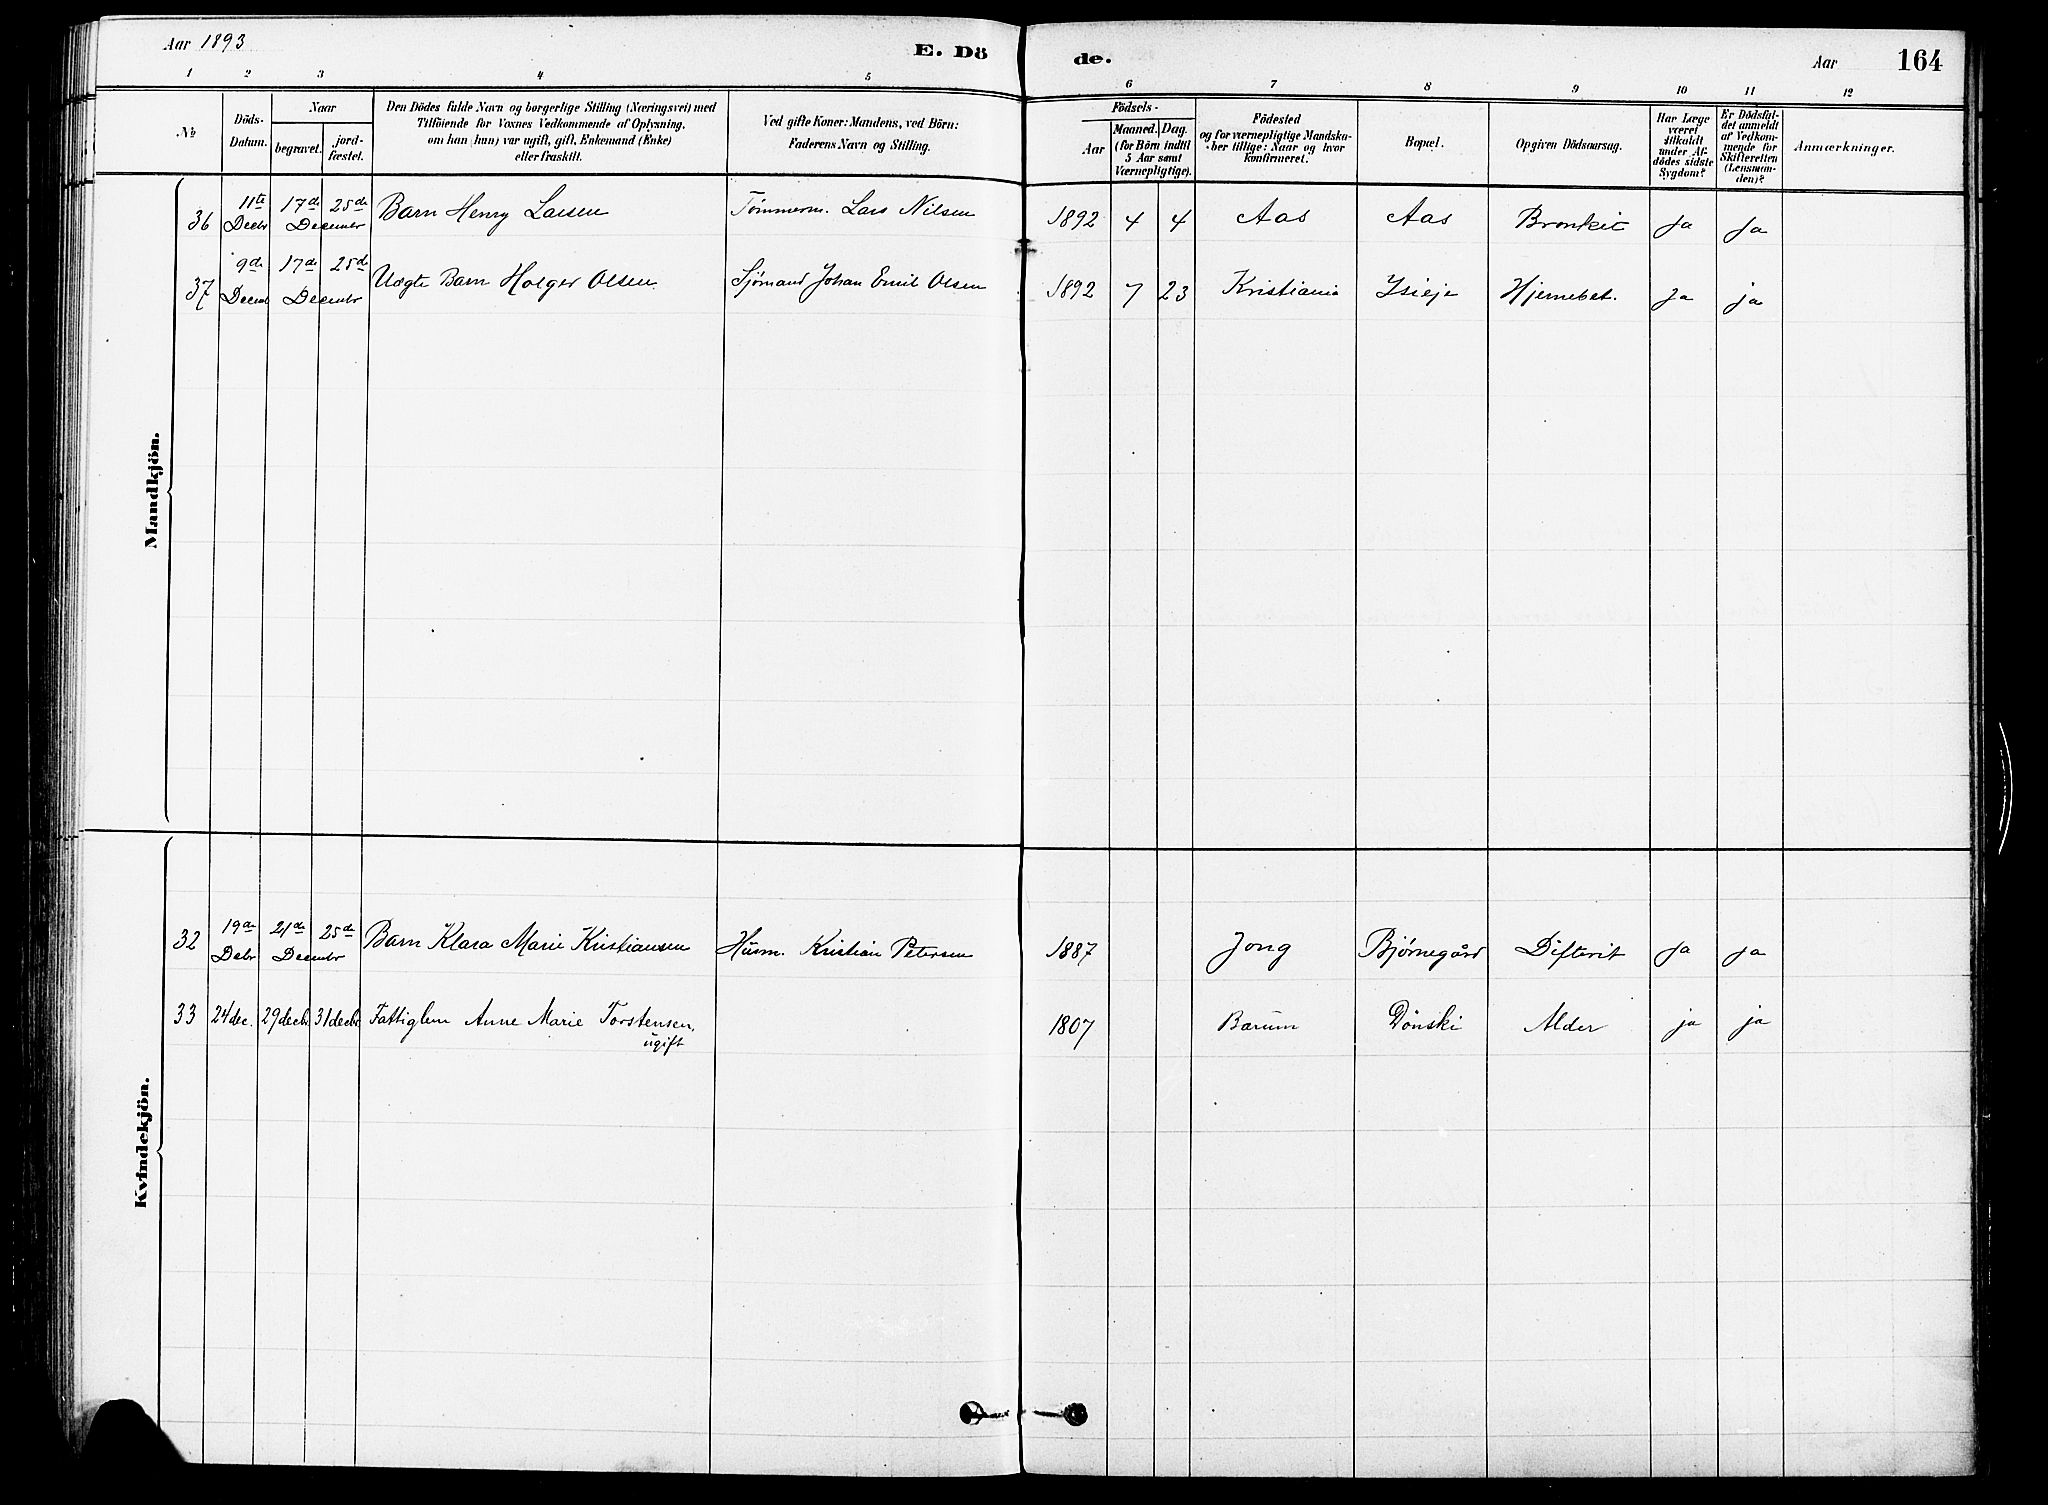 Aar 1893
E. Dö
de.
Aar
164
1 2 3 4 5 6 7 8 9 10 11 12
№
Döds-
Datum.
Naar
begravet.
jord-
fæstet.
Den Dödes fulde Navn og borgerlige Stilling (Næringsvei) med
Tilföiende for Voxnes Vedkommende af Oplysning,
om han (hun) var ugift, gift, Enkemand (Enke)
eller fraskilt.
Ved gifte Koner: Mandens, ved Börn:
Faderens Navn og Stilling.
Födsels-
Aar
Maaned. Dag.
(for Börn indtil
5 Aar samt
Værnepligtige).
Födested
og for værnepligtige Mandska-
ber tillige: Naar og hvor
konfirmeret.
Bopæl.
Opgiven Dödsaarsag.
Har Læge
været
tilkaldt
under Af-
dödes sidste
Sygdom?
Er Dödsfal-
det anmeldt
af Vedkom-
mende for
Skifteretten
(Lensman-
den)?
Anmærkninger.
Mandkjön.
36 11te Decbr 17de 25de December Barn Henry Larsen Tömmerm. Lars Nilsen 1892 4 4 Aas Aas Bronkit Ja Ja
37 9de Decemb 17de 25de Decembr Uægte Barn Holger Olsen. Sjømand Johan Emil Olsen 1892 7 23 Kristiania Hjernebet. Ja ja
Kvindekjön.
32 19de Debr 21de 25de Decembr Barn Klara Marie Kristiansen Husm. Kristian Petersen 1887 Jong Bjørnegård Difterit Ja ja
33 24 dec. 29 decbr 31 decbr Fattiglem Anne Marie Torstensen, 1807 Bærum Dønski Alder ja ja
ugift